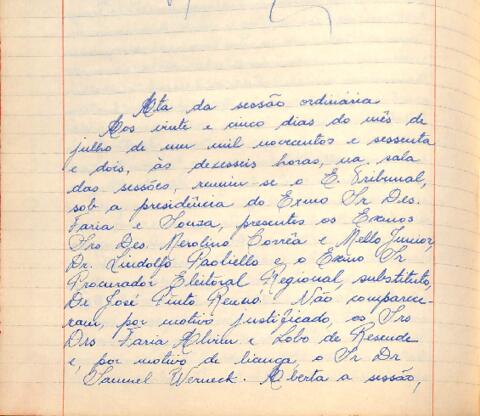 Ata da sessão ordinária
Aos vinte e cinco dias do mês de
julho de um mil novecentos e sessenta
e dois, às dezesseis horas, na sala
das sessões, reuniu-se o E. Tribunal,
sob a presidência do Exmo Sr Des.
Faria e Souza, presentes os Exmos
Srs Des. Merolino Corrêa e Mello Junior,
Dr. Lindolfo Paoliello e o Exmo Sr
Procurador Eleitoral Regional, substituto,
Dr José Pinto Renó. Não comparece-
ram, por motivo justificado, os Srs
Drs Faria Alvim e Lobo de Resende
e, por motivo de licença, o Sr Dr
Samuel Werneck. Aberta a sessão,